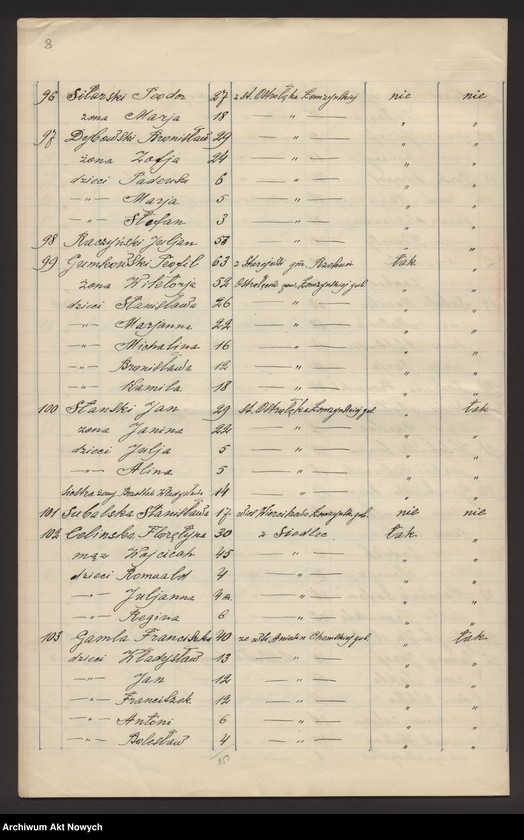 8
96 Sitarski Teodor 27 z st. Ostrołęka Łomżyńskiej nie nie
żona Marja 18 — " — " "
97 Dybowski Bronisław 29 — " — " "
żona Zofja 24 — " — " "
dzieci Tadeusz 6 — " — " "
— " — Marja 5 — " — " "
— " — Stefan 3 — " — " "
98 Raczyński Juljan — " — " "
99 Gumkowski Teofil 63 z gm. Rzekuń tak "
żona Wiktorja 52 Ostrołęcki pow. Łomżyńskiej gub. " "
dzieci Stanisława 26 — " — " "
— " — Marjanna 22 — " — " "
— " — Michalina 16 — " — " "
— " — Bronisława 12 — " — " "
— " — Kamila 18 — " — " "
100 Stanski Jan 29 st. Ostrołęka Łomżyńskiej gub. " tak
żona Janina 22 — " — " "
dzieci Julja 5 — " — " "
— " — Alina 5 — " — " "
siostra żony Władysława 14 — " — " "
101 Subalska Stanisława 17 Łomżyńska gub. nie nie
102 Celinska 30 z Siedlec tak "
mąż Wojciech 45 — " — " "
dzieci Romuald 4 — " — " "
— " — Juljanna — " — " "
— " — Regina 6 — " — " "
103 Gamla Franciszka 40 ze wsi Chełmskiej gub. " tak
dzieci Władysław 13 — " — " "
— " — Jan 12 — " — " "
— " — Franciszek 12 — " — " "
— " — Antoni 6 — " — " "
— " — Bolesław 4 — " — " "
Archiwum Akt Nowych